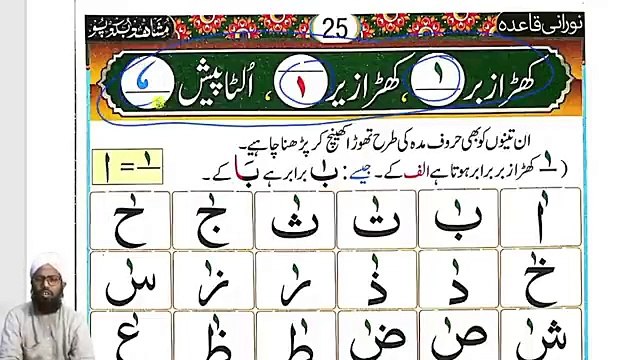 نورانی قاعدہ 25
کھڑا زبر ــٰـ، کھڑا زیر ــٖـ، اُلٹا پیش ــٗـ
ان تینوں کو بھی حروف مدہ کی طرح تھوڑا کھینچ کر پڑھنا چاہیے۔
(ــٰـ کھڑا زبر برابر ہوتا ہے الف کے۔ جیسے: بٰ برابر ہے بَا کے۔
ــٰـ = ا
اٰ بٰ تٰ ثٰ جٰ حٰ
خٰ دٰ ذٰ رٰ زٰ سٰ
شٰ صٰ ضٰ طٰ ظٰ عٰ